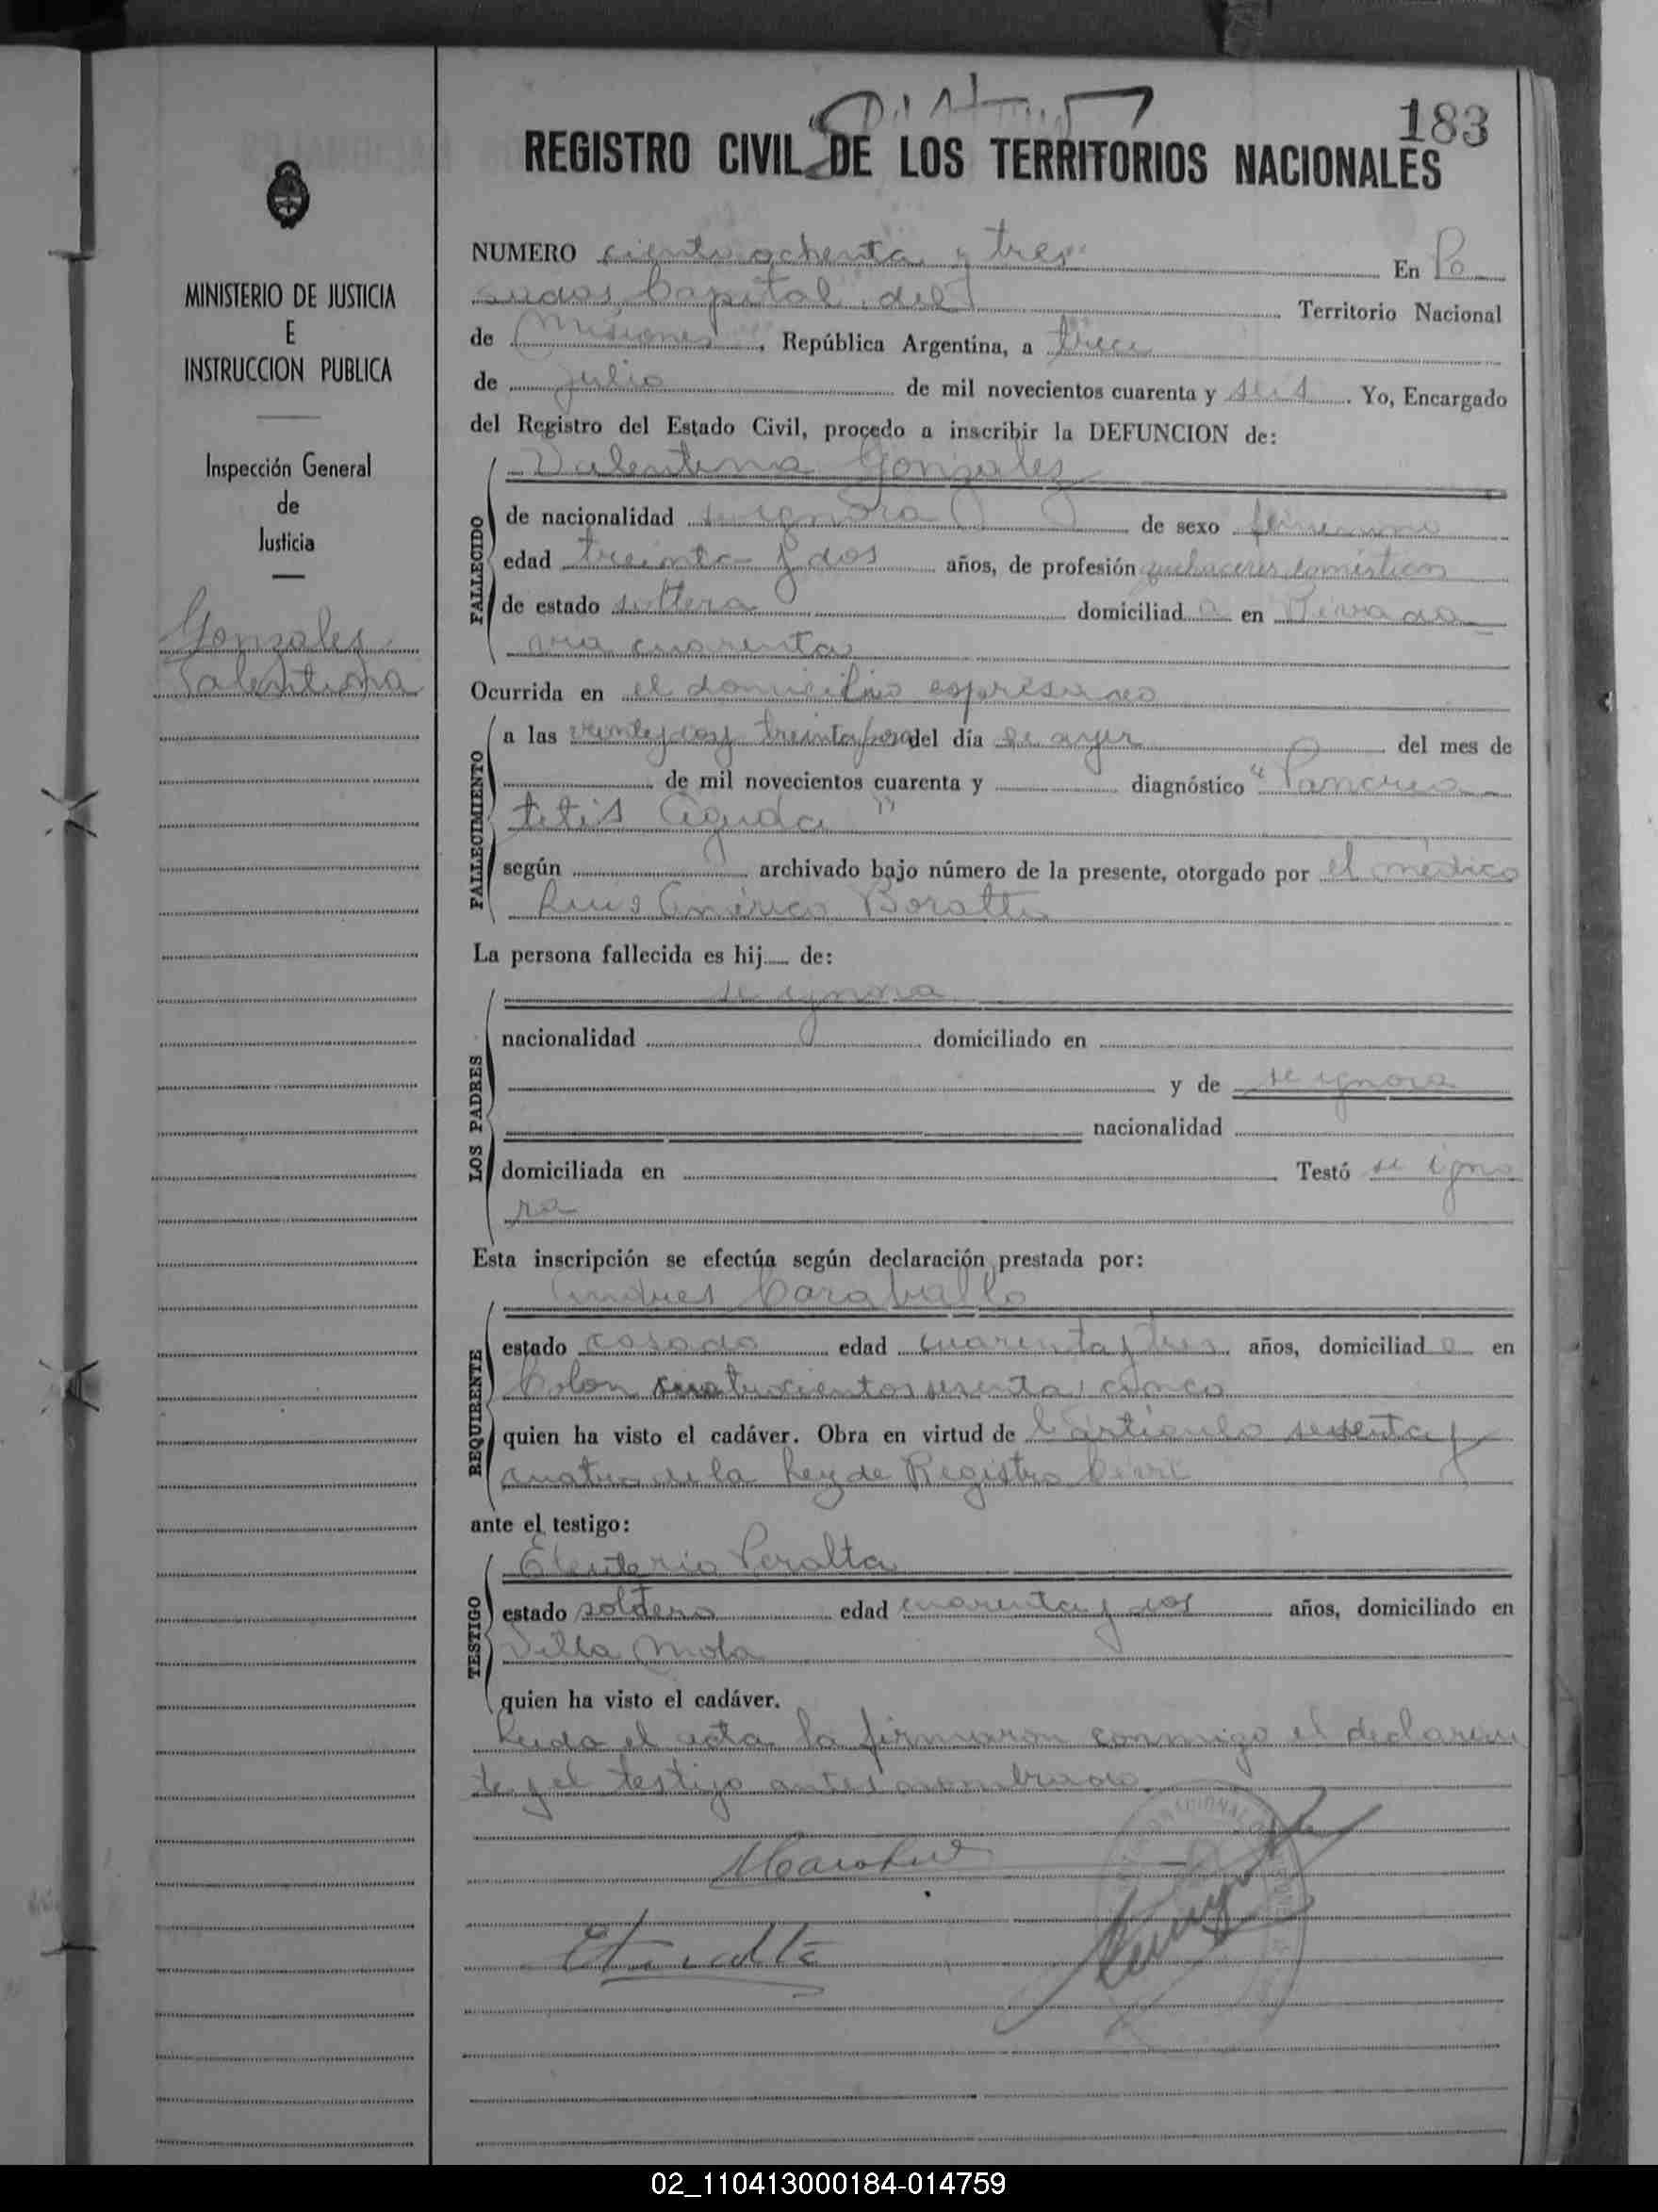 183
REGISTRO CIVIL DE LOS TERRITORIOS NACIONALES
MINISTERIO DE JUSTICIA
E
INSTRUCCION PUBLICA
Inspección General
de
Justicia
Gonzales
Valentina
NUMERO ciento ochenta y tres En Po
sadas Capital del Territorio Nacional
de Misiones, República Argentina, a trece
de julio de mil novecientos cuarenta y seis. Yo, Encargado
del Registro del Estado Civil, procedo a inscribir la DEFUNCION de:
Valentina Gonzales
FALLECIDO
de nacionalidad se ignora de sexo femenino
edad treinta y dos años, de profesión quehaceres domésticos
de estado soltera domiciliad a en
cuarenta
Ocurrida en el domicilio expresado
FALLECIMIENTO
a las veinte y dos y treinta horas del día de ayer del mes de
de mil novecientos cuarenta y diagnóstico "Pancrea
titis Aguda"
según archivado bajo número de la presente, otorgado por el médico
Luis Américo Boratti
La persona fallecida es hij de:
LOS PADRES
se ignora
nacionalidad domiciliado en
y de se ignora
nacionalidad
domiciliada en Testó se igno
ra
Esta inscripción se efectúa según declaración prestada por:
REQUIRENTE
Andres Caraballo
estado casado edad cuarenta y tres años, domiciliad o en
Colon cuatrocientos sesenta y cinco
quien ha visto el cadáver. Obra en virtud de l'artículo sesenta y
cuatro de la Ley de Registro Civil
ante el testigo:
TESTIGO
Eleuterio Peralta
estado soltero edad cuarenta y dos años, domiciliado en
Villa Mola
quien ha visto el cadáver.
Leida el acta la firmaron conmigo el declaran
te y el testigo antes nombrado
02_110413000184-014759